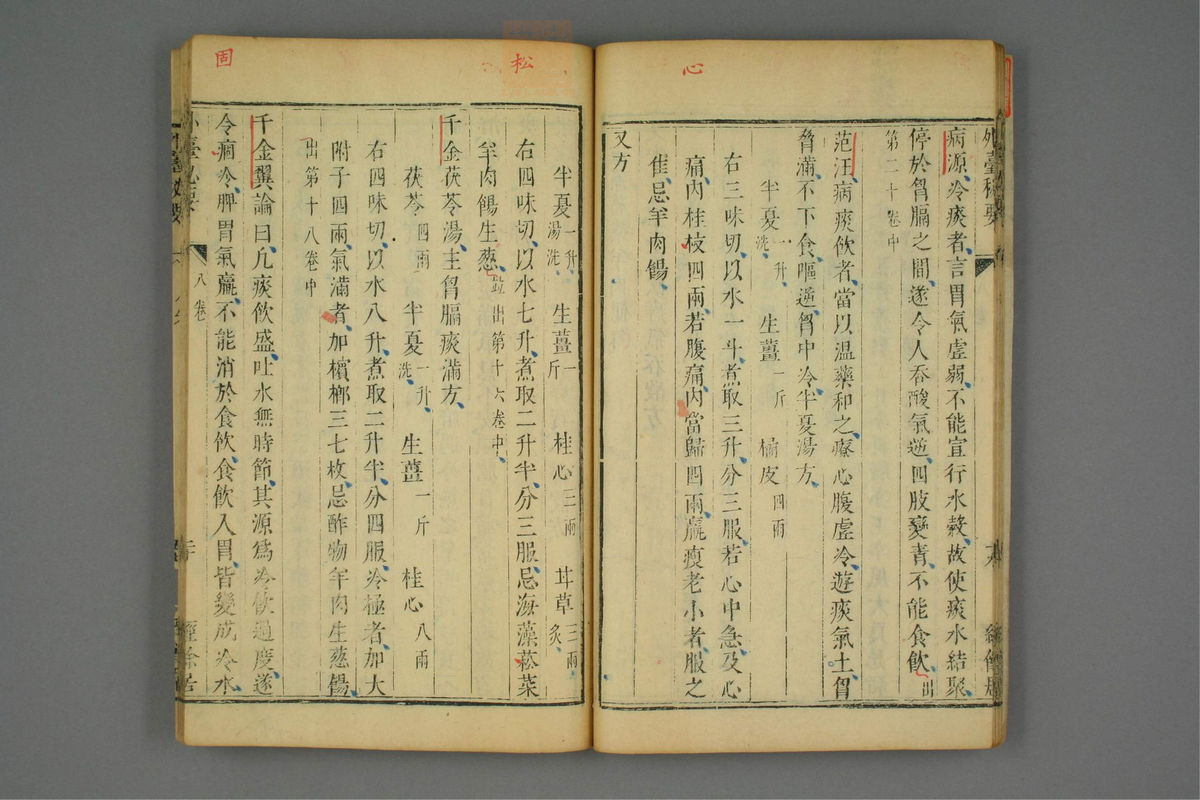 心
外臺秘要
病源冷痰者言胃氣虛弱不能宣行水穀故使痰水結聚
停於胷膈之間遂令人吞酸氣逆四肢變青不能食飲出
第二十卷中
范汪病痰飲者當以温藥和之療心腹虛冷遊痰氣上胷
脅滿不下食嘔逆胷中冷半夏湯方
半夏一升洗 生薑一斤 橘皮四兩
右三味切以水一斗煮取三升分三服若心中急及心
痛內桂枝四兩若腹痛內當歸四兩羸瘦老小者服之
佳忌羊肉餳
又方
松
固
半夏一升湯洗 生薑一斤 桂心三兩 甘草三兩炙
右四味切以水七升煮取二升半分三服忌海藻菘菜
羊肉餳生葱並出第十六卷中
千金茯苓湯主胷膈痰滿方
茯苓四兩 半夏一升洗 生薑一斤 桂心八兩
右四味切以水八升煮取二升半分四服冷極者加大
附子四兩氣滿者加檳榔三七枚忌酢物羊肉生葱餳
出第十八卷中
千金翼論曰凡痰飲盛吐水無時節其源為冷飲過度遂
令痼冷脾胃氣羸不能消於食飲食飲入胃皆變成冷水
八卷